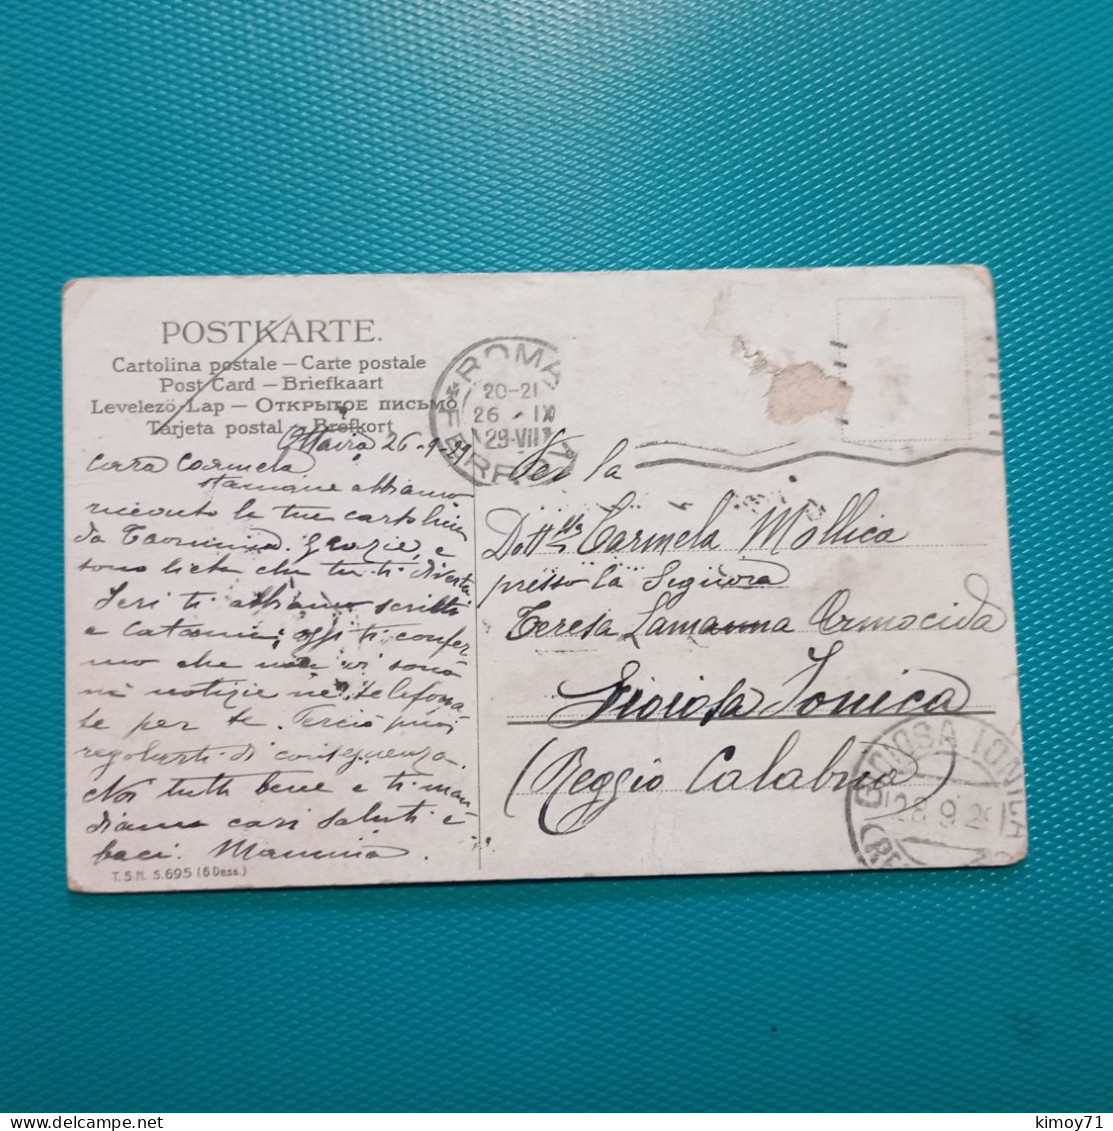 POSTKARTE.
Cartolina postale – Carte postale
Post Card – Briefkaart
Levelező-Lap – Открытое письмо
Tarjeta postal – Brefkort
26-9-29
Cara Carmela
stamane abbiamo
ricevuto la tua cartolina
da Taormina. Grazie, e
sono lieta che tu ti diverta
Ieri ti abbiamo scritto
a Catania; oggi ti confer
mo che non vi sono
nè notizie nè telefona
te per te. Perciò puoi
regolarti di conseguenza.
Noi tutti bene e ti man
diamo cari saluti e
baci. Mammina
T.S.N. S.695 (6 Dess.)
ROMA
20-21
26 · IX
29-VII
FERR
Per la
Dott.lla Carmela Mollica
presso la Signora
Teresa Lamanna Armocida
Gioiosa Ionica
(Reggio Calabria
GIOIOSA IONICA
28.9.29
kimoy71